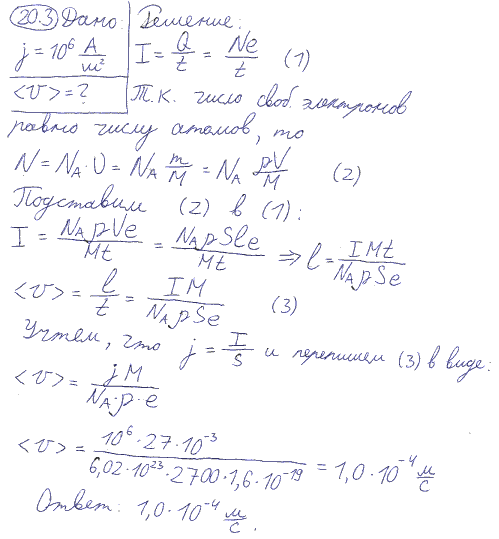 20.3 Дано: Решение:
j = 10⁶ А/м² I = Q/t = Ne/t (1)
<v> = ? Т.к. число своб. электронов
равно числу атомов, то
N = N_A·υ = N_A m/M = N_A ρV/M (2)
Подставим (2) в (1):
I = N_AρVe/Mt = N_AρSle/Mt ⇒ l = IMt/N_AρSe
<v> = l/t = IM/N_AρSe (3)
Учтем, что j = I/S и перепишем (3) в виде:
<v> = jM/N_A·ρ·e
<v> = 10⁶·27·10⁻³/6,02·10²³·2700·1,6·10⁻¹⁹ = 1,0·10⁻⁴ м/с
Ответ: 1,0·10⁻⁴ м/с.